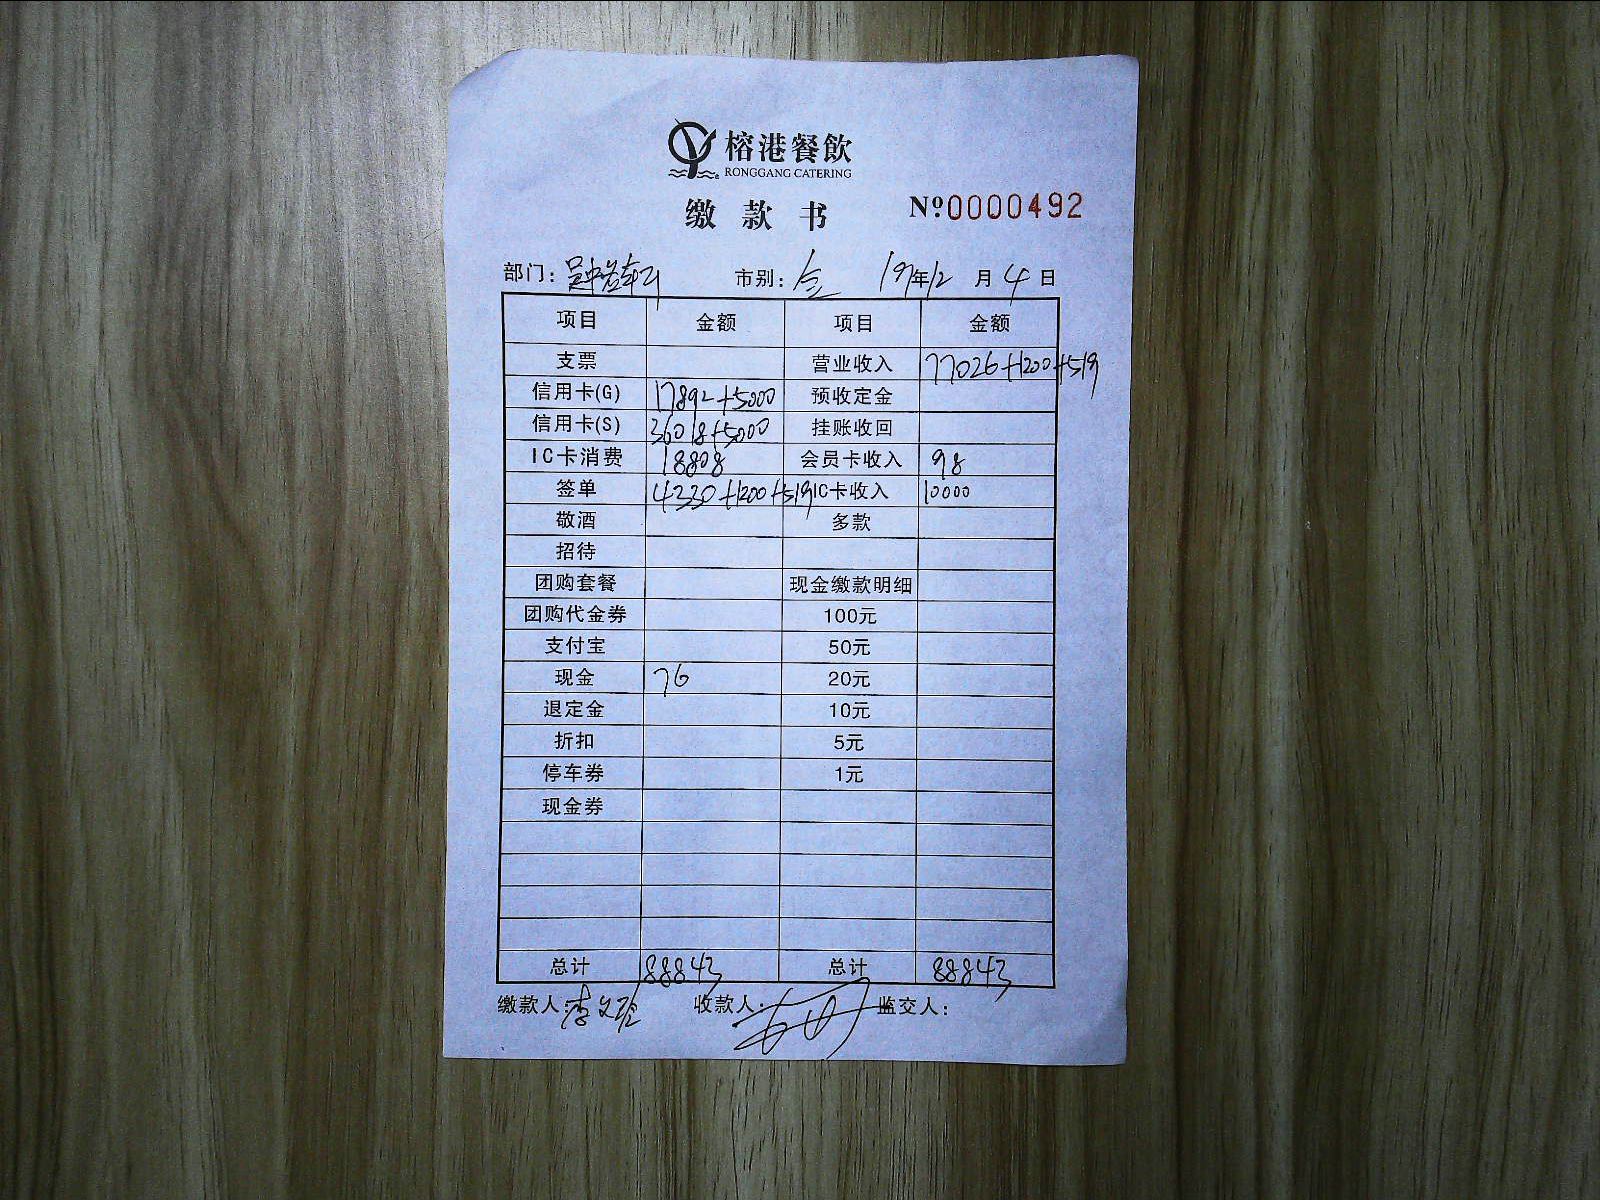 榕港餐飲
RONGGANG CATERING
缴款书 Nº0000492
部门： 市别：全 19年12月4日
项目 金额 项目 金额
支票 营业收入 77026+1200+519
信用卡(G) 17892+5000 预收定金
信用卡(S) 36018+5000 挂账收回
IC卡消费 18808 会员卡收入 98
签单 4330+1200+519 IC卡收入 10000
敬酒 多款
招待
团购套餐 现金缴款明细
团购代金券 100元
支付宝 50元
现金 76 20元
退定金 10元
折扣 5元
停车券 1元
现金券
总计 88843 总计 88843
缴款人： 收款人： 监交人：